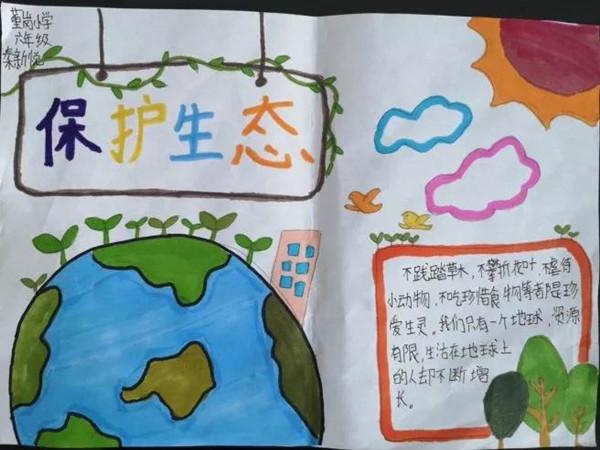 董岗小学
六年级
秦新悦
保护生态
不践踏草木,不攀折花叶,虐待
小动物,不吃珍惜食物等者陧珍
爱生灵。我们只有一个地球,资源
有限,生活在地球上
的人却不断增
长。